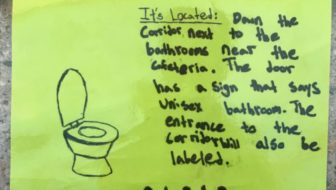 It's Located: Down the
Corritor next to the
bathrooms near the
Cafeteria. The door
has a sign that says
Unisex bathroom. The
entrance to the
corritor will also be
labeled.